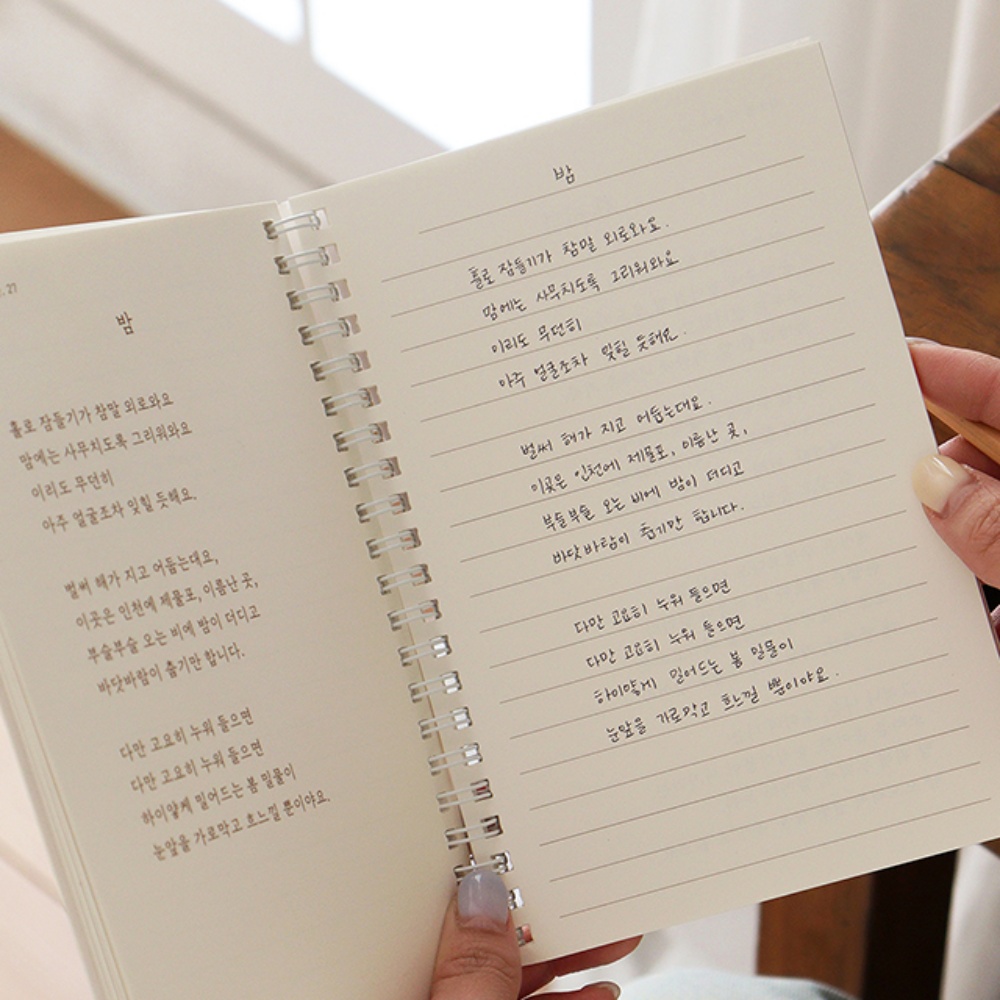 . 27
밤
홀로 잠들기가 참말 외로와요
맘에는 사무치도록 그리워와요
이리도 무던히
아주 얼굴조차 잊힐 듯해요.
벌써 해가 지고 어둡는대요,
이곳은 인천에 제물포, 이름난 곳,
부슬부슬 오는 비에 밤이 더디고
바닷바람이 춥기만 합니다.
다만 고요히 누워 들으면
다만 고요히 누워 들으면
하이얗게 밀어드는 봄 밀물이
눈앞을 가로막고 흐느낄 뿐이야요.
밤
홀로 잠들기가 참말 외로와요.
맘에는 사무치도록 그리워와요
이리도 무던히
아주 얼굴조차 잊힐 듯해요.
벌써 해가 지고 어둡는대요.
이곳은 인천에 제물포, 이름난 곳,
부슬부슬 오는 비에 밤이 더디고
바닷바람이 춥기만 합니다.
다만 고요히 누워 들으면
다만 고요히 누워 들으면
하이얗게 밀어드는 봄 밀물이
눈앞을 가로막고 흐느낄 뿐이야요.